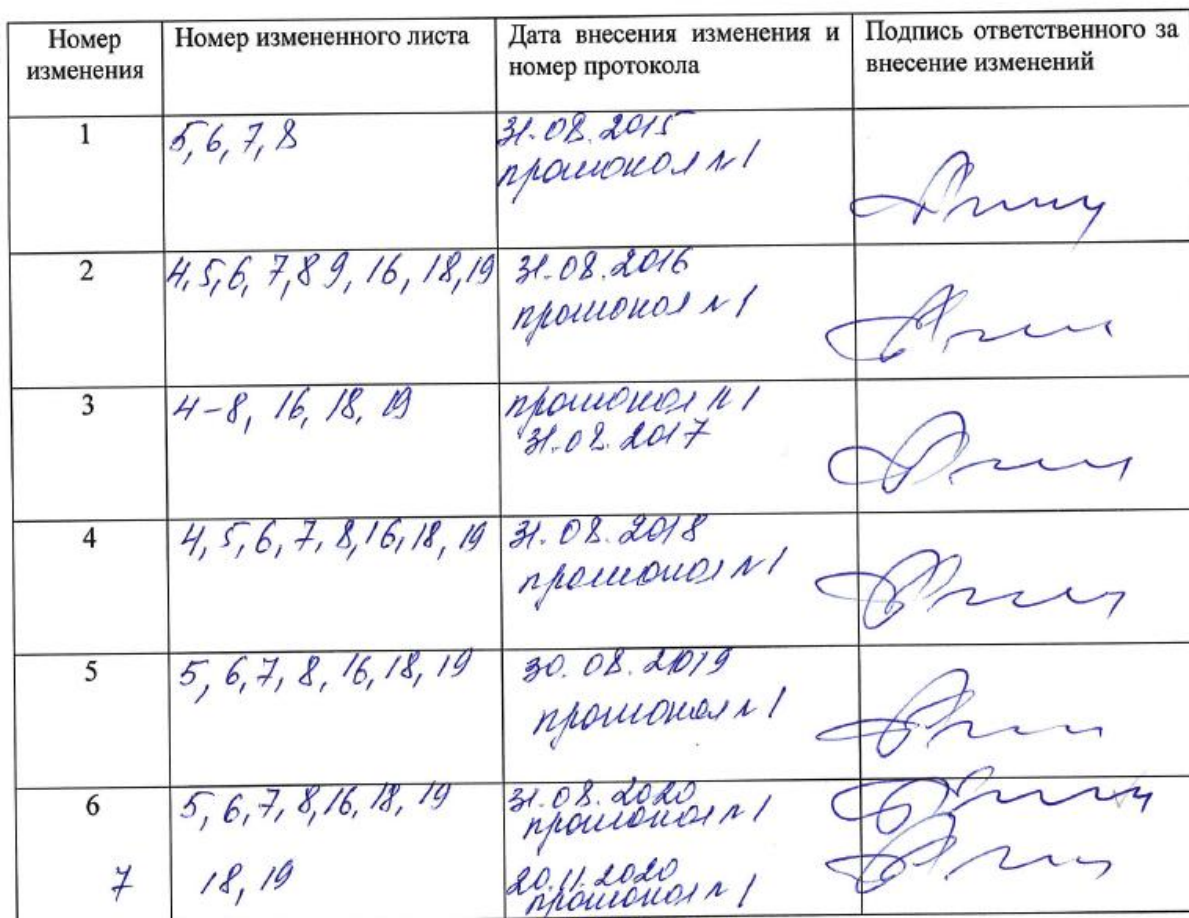 Номер изменения
Номер измененного листа
Дата внесения изменения и номер протокола
Подпись ответственного за внесение изменений
1
5, 6, 7, 8
31.08.2015
протокол №1
2
4, 5, 6, 7, 8 9, 16, 18, 19
31.08.2016
протокол №1
3
4-8, 16, 18, 19
протокол №1
31.08.2017
4
4, 5, 6, 7, 8, 16, 18, 19
31.08.2018
протокол №1
5
5, 6, 7, 8, 16, 18, 19
30.08.2019
протокол №1
6
5, 6, 7, 8, 16, 18, 19
31.08.2020
протокол №1
7
18, 19
20.11.2020
протокол №1